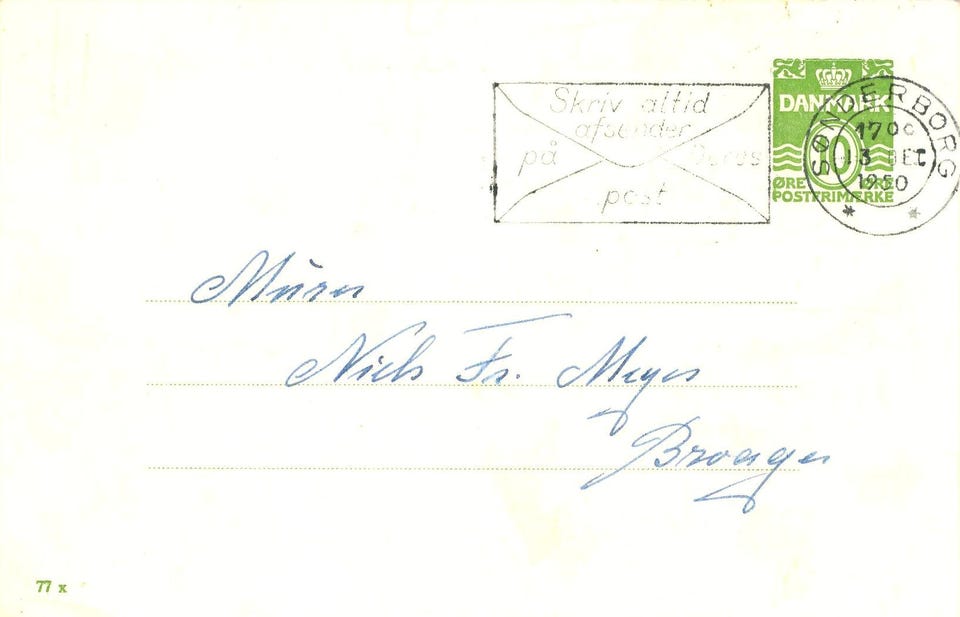 Skriv altid
afsender
på Deres
post
DANMARK
10
ØRE ØRE
POSTFRIMÆRKE
SØNDERBORG
1700
3 DEC
1950
Murer
Niels Fr. Meyer
Broager
77 x